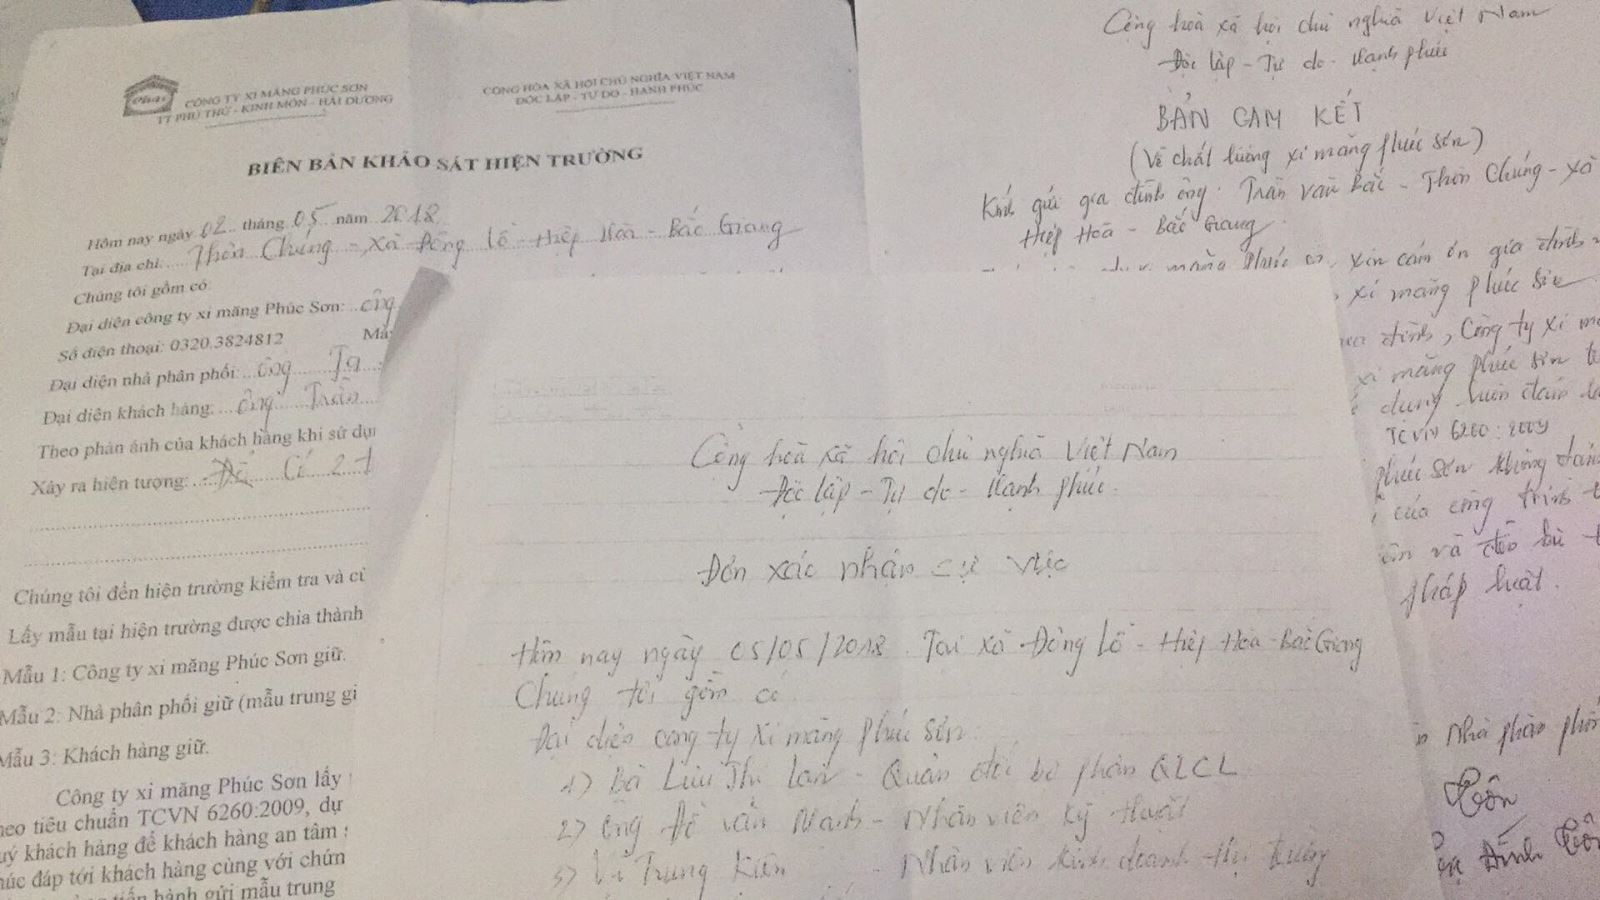 Phúc
CÔNG TY XI MĂNG PHÚC SƠN
TT PHÚ THỨ - KINH MÔN - HẢI DƯƠNG
CỘNG HÒA XÃ HỘI CHỦ NGHĨA VIỆT NAM
ĐỘC LẬP - TỰ DO - HẠNH PHÚC
BIÊN BẢN KHẢO SÁT HIỆN TRƯỜNG
Hôm nay ngày 02 tháng 05 năm 2018
Tại địa chỉ: Thôn Chúng - Xã Đông Lỗ - Hiệp Hòa - Bắc Giang
Chúng tôi gồm có
Đại diện công ty xi măng Phúc Sơn: ông
Số điện thoại: 0320.3824812
Đại diện nhà phân phối: ông Tạ
Đại diện khách hàng: ông Trần
Theo phản ánh của khách hàng khi sử
Xảy ra hiện tượng: Có 2
Chúng tôi đến hiện trường kiểm tra và
Lấy mẫu tại hiện trường được chia thành
Mẫu 1: Công ty xi măng Phúc Sơn giữ.
Mẫu 2: Nhà phân phối giữ (mẫu trung gi
Mẫu 3: Khách hàng giữ.
Công ty xi măng Phúc Sơn lấy
heo tiêu chuẩn TCVN 6260:2009, dự
uý khách hàng để khách hàng an tâm
húc đáp tới khách hàng cùng với chứn
tiến hành gửi mẫu trung
Cộng hoà xã hội chủ nghĩa Việt Nam
Độc lập - Tự do - Hạnh phúc
BẢN CAM KẾT
(Về chất lượng xi măng phúc sơn)
Kính gửi gia đình ông: Trần Văn Bắc - Thôn Chúng - xã
Hiệp Hoà - Bắc Giang
măng Phúc xin cám ơn gia đình
xi măng phúc sơn
đình, Công ty xi
xi măng phúc sơn
dụng luôn đảm
TCVN 6260:2009
phúc sơn không
của công trình
và đền bù
pháp luật.
Nhà phân phối
Tôn
Đình Tôn
Cộng hoà xã hội chủ nghĩa Việt Nam
Độc lập - Tự do - Hạnh phúc
Đơn xác nhận sự việc
Hôm nay ngày 05/05/2018. Tại xã Đông Lỗ - Hiệp Hòa - Bắc Giang
Chúng tôi gồm có
Đại diện công ty xi măng phúc sơn:
1) Bà Lưu Thị Lan - Quản đốc bộ phận QLCL
2) ông Đỗ Văn Mạnh - Nhân viên kỹ thuật
3) Vũ Trung Kiên - Nhân viên kinh doanh thị trường